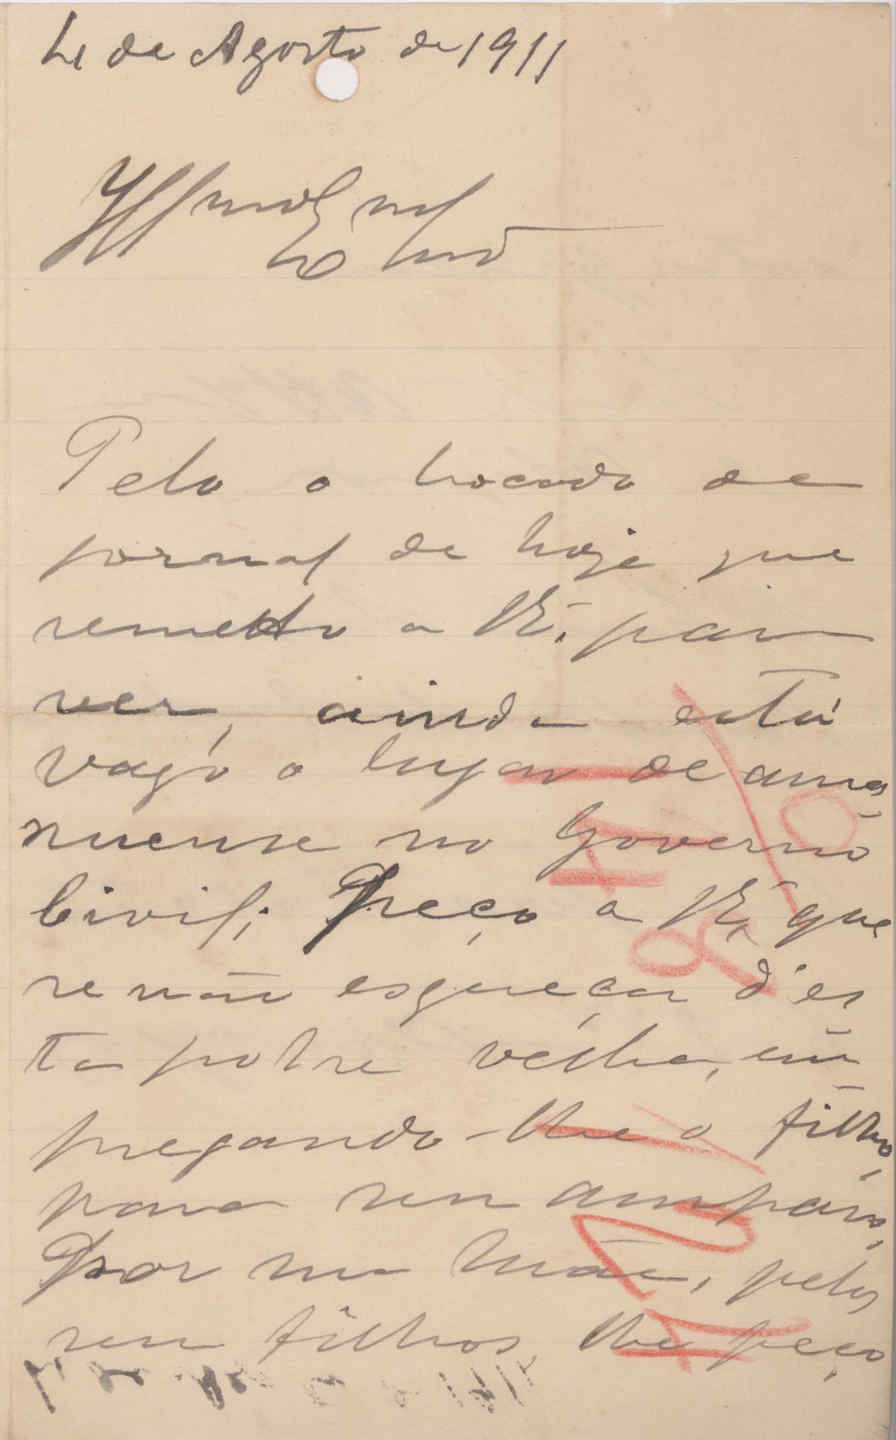 4 de Agosto de 1911
Illmo Exmo Snr
Pelo o bocado de
jornal de hoje que
remetto a V.E. para
ver, ainda está
vago o lugar de ama
nuense no Governo
Civil; Peço a V.E. que
se não esqueça d'es
ta pobre velha, em
pregando-lhe o filho,
para seu amparo,
Por sua Mãe, pelos
seus filhos, lhe peço